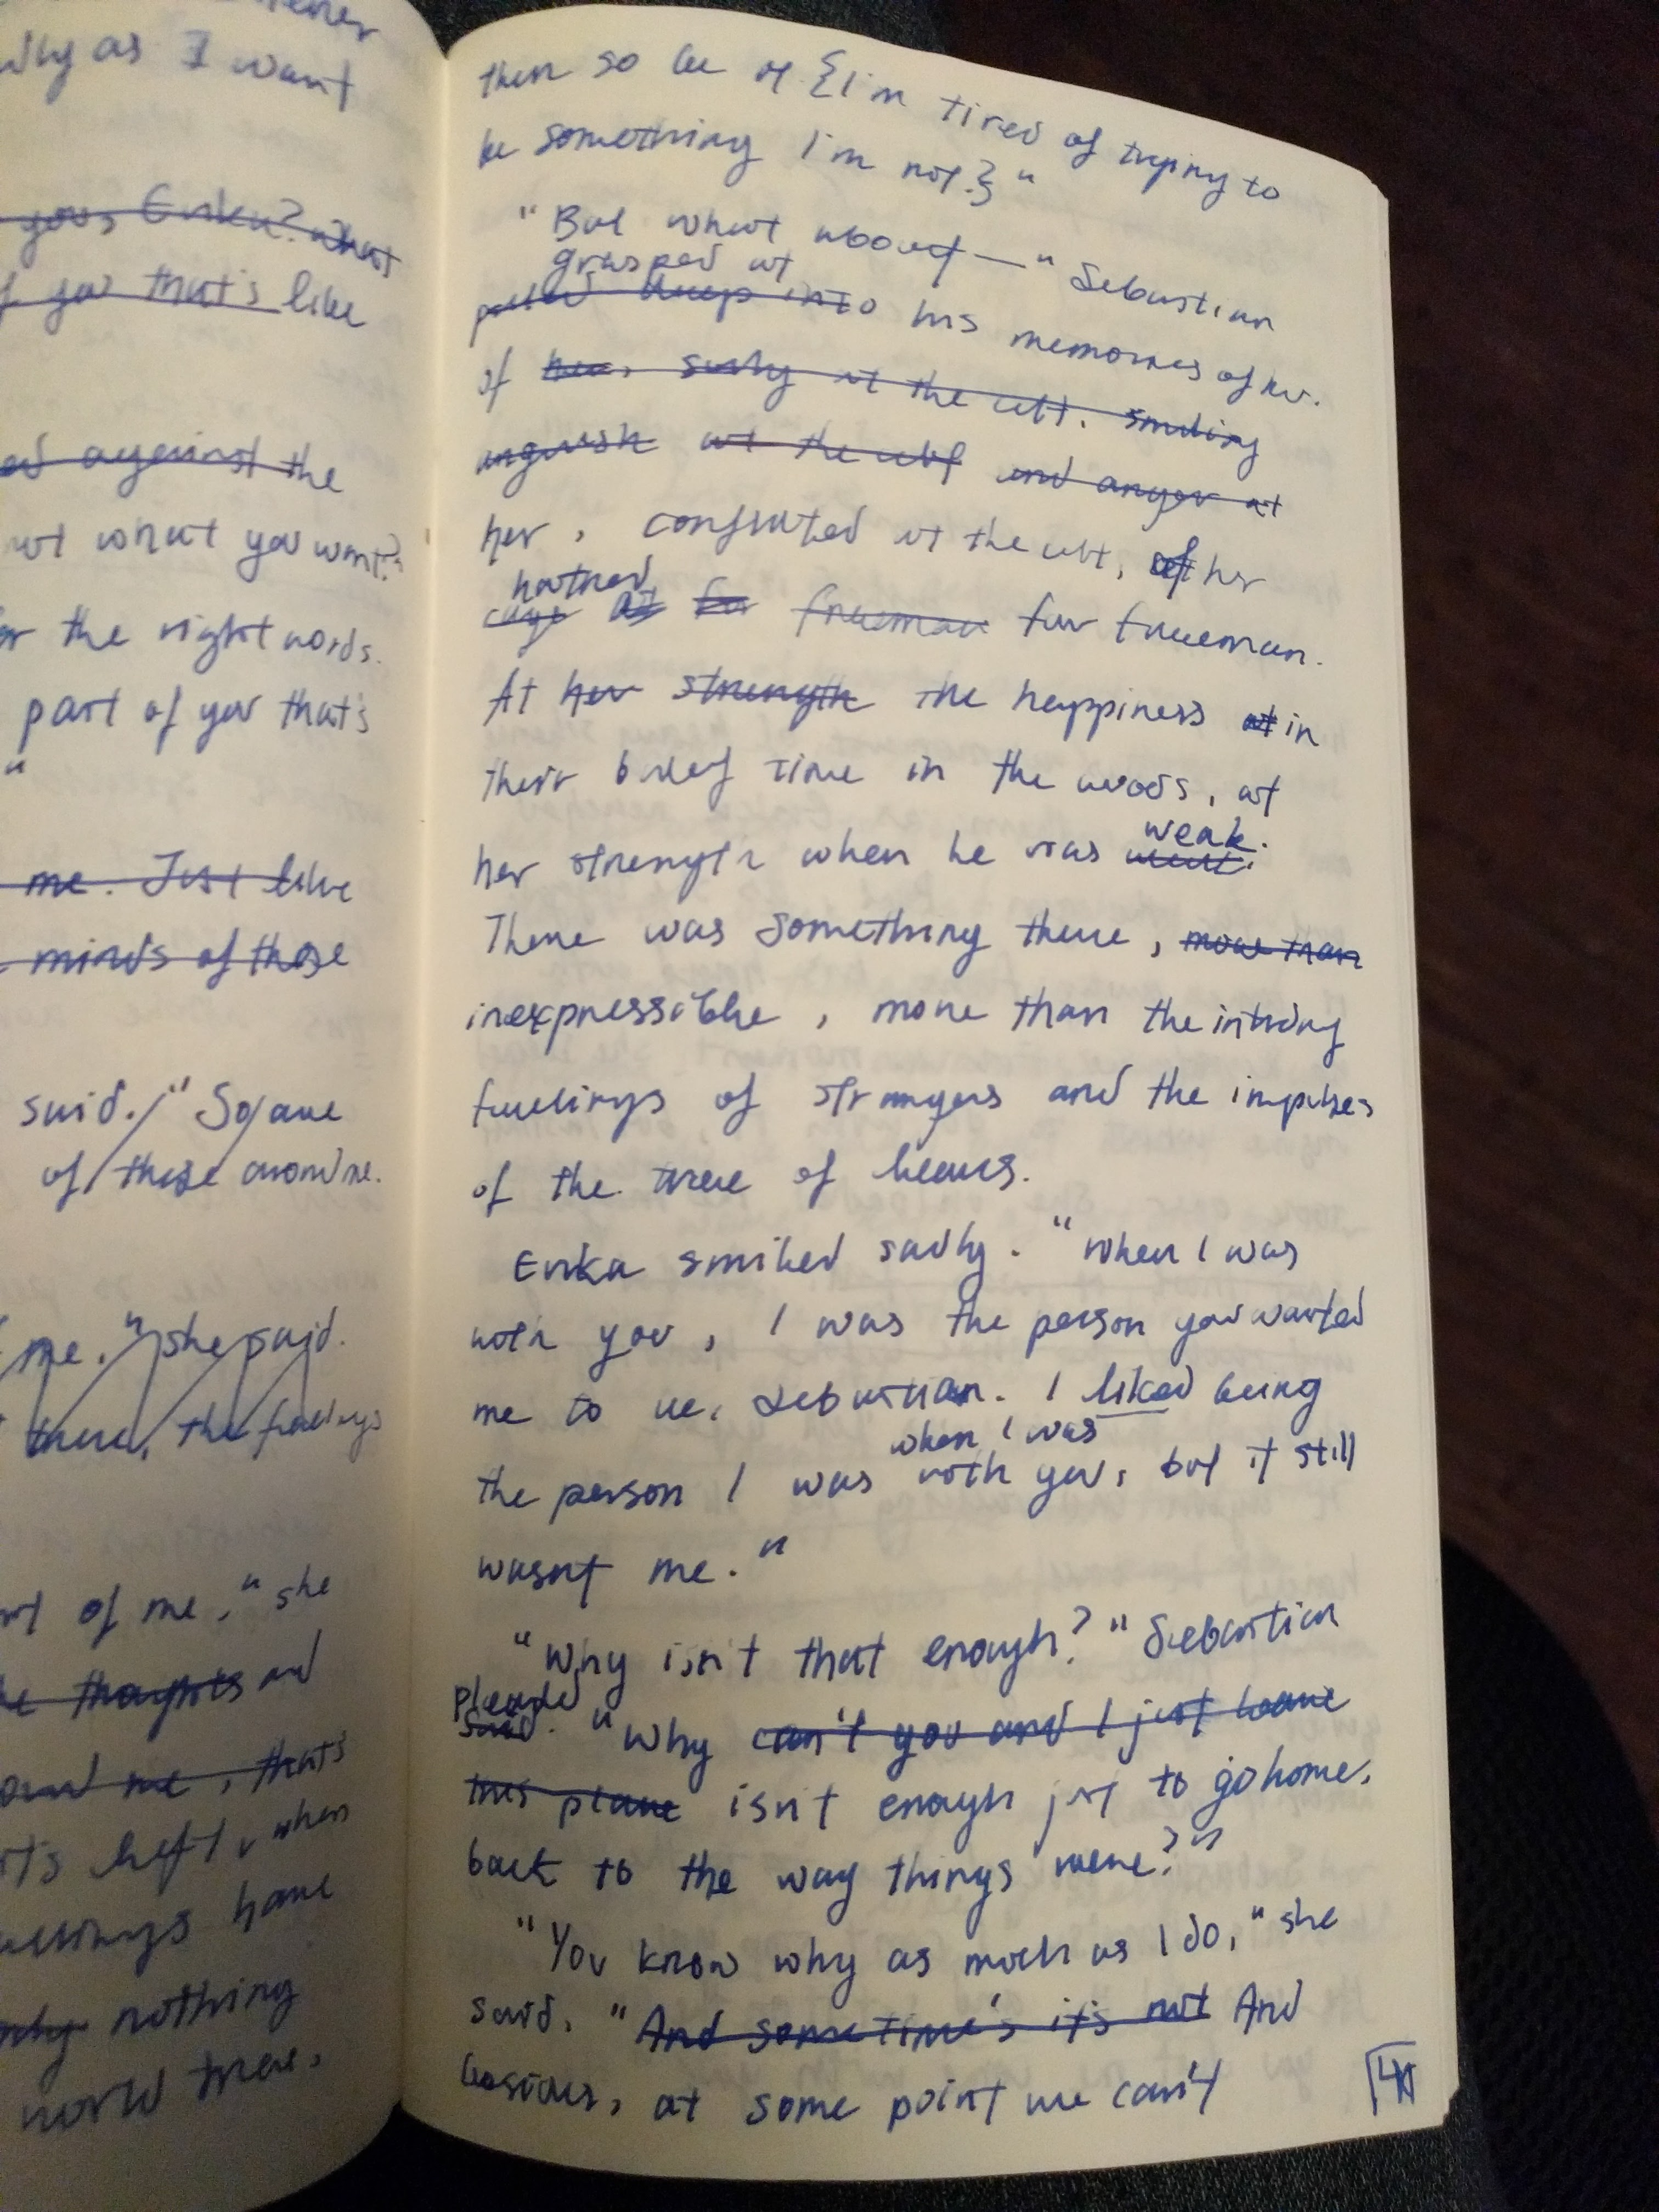 why as I want
you, Erika? What
you that's like
ed against the
what you want?
the right words.
part of you that's
"
me. Just like
minds of those
said. "So are
of those around me.
me." she said.
there, the feelings
of me," she
thoughts and
me, that's
left, when
have
nothing
world tree.
then so be it {I'm tired of trying to
be something I'm not.}"
"But what about—" Sebastian
grasped at
pulled deep into his memories of her.
of her, sadly at the cliff. smiling
anguish at the cliff and anger at
her, conflicted at the cliff, of her
hatred
rage at for freeman for freeman.
At her strength the happiness at in
their brief time in the woods, at
weak.
her strength when he was weak.
There was something there, more than
inexpressible, more than the
feelings of strangers and the impulses
of the tree of
Erika smiled sadly. "When I was
with you, I was the person you wanted
me to be, Sebastian. I liked being
when I was
the person I was with you, but it still
wasn't me."
"Why isn't that enough?" Sebastian
pleaded
said. "Why can't you and I just leave
this place isn't enough just to go home,
back to the way things were?"
"You know why as much as I do," she
said. "And sometime's it's not And
besides, at some point we can't